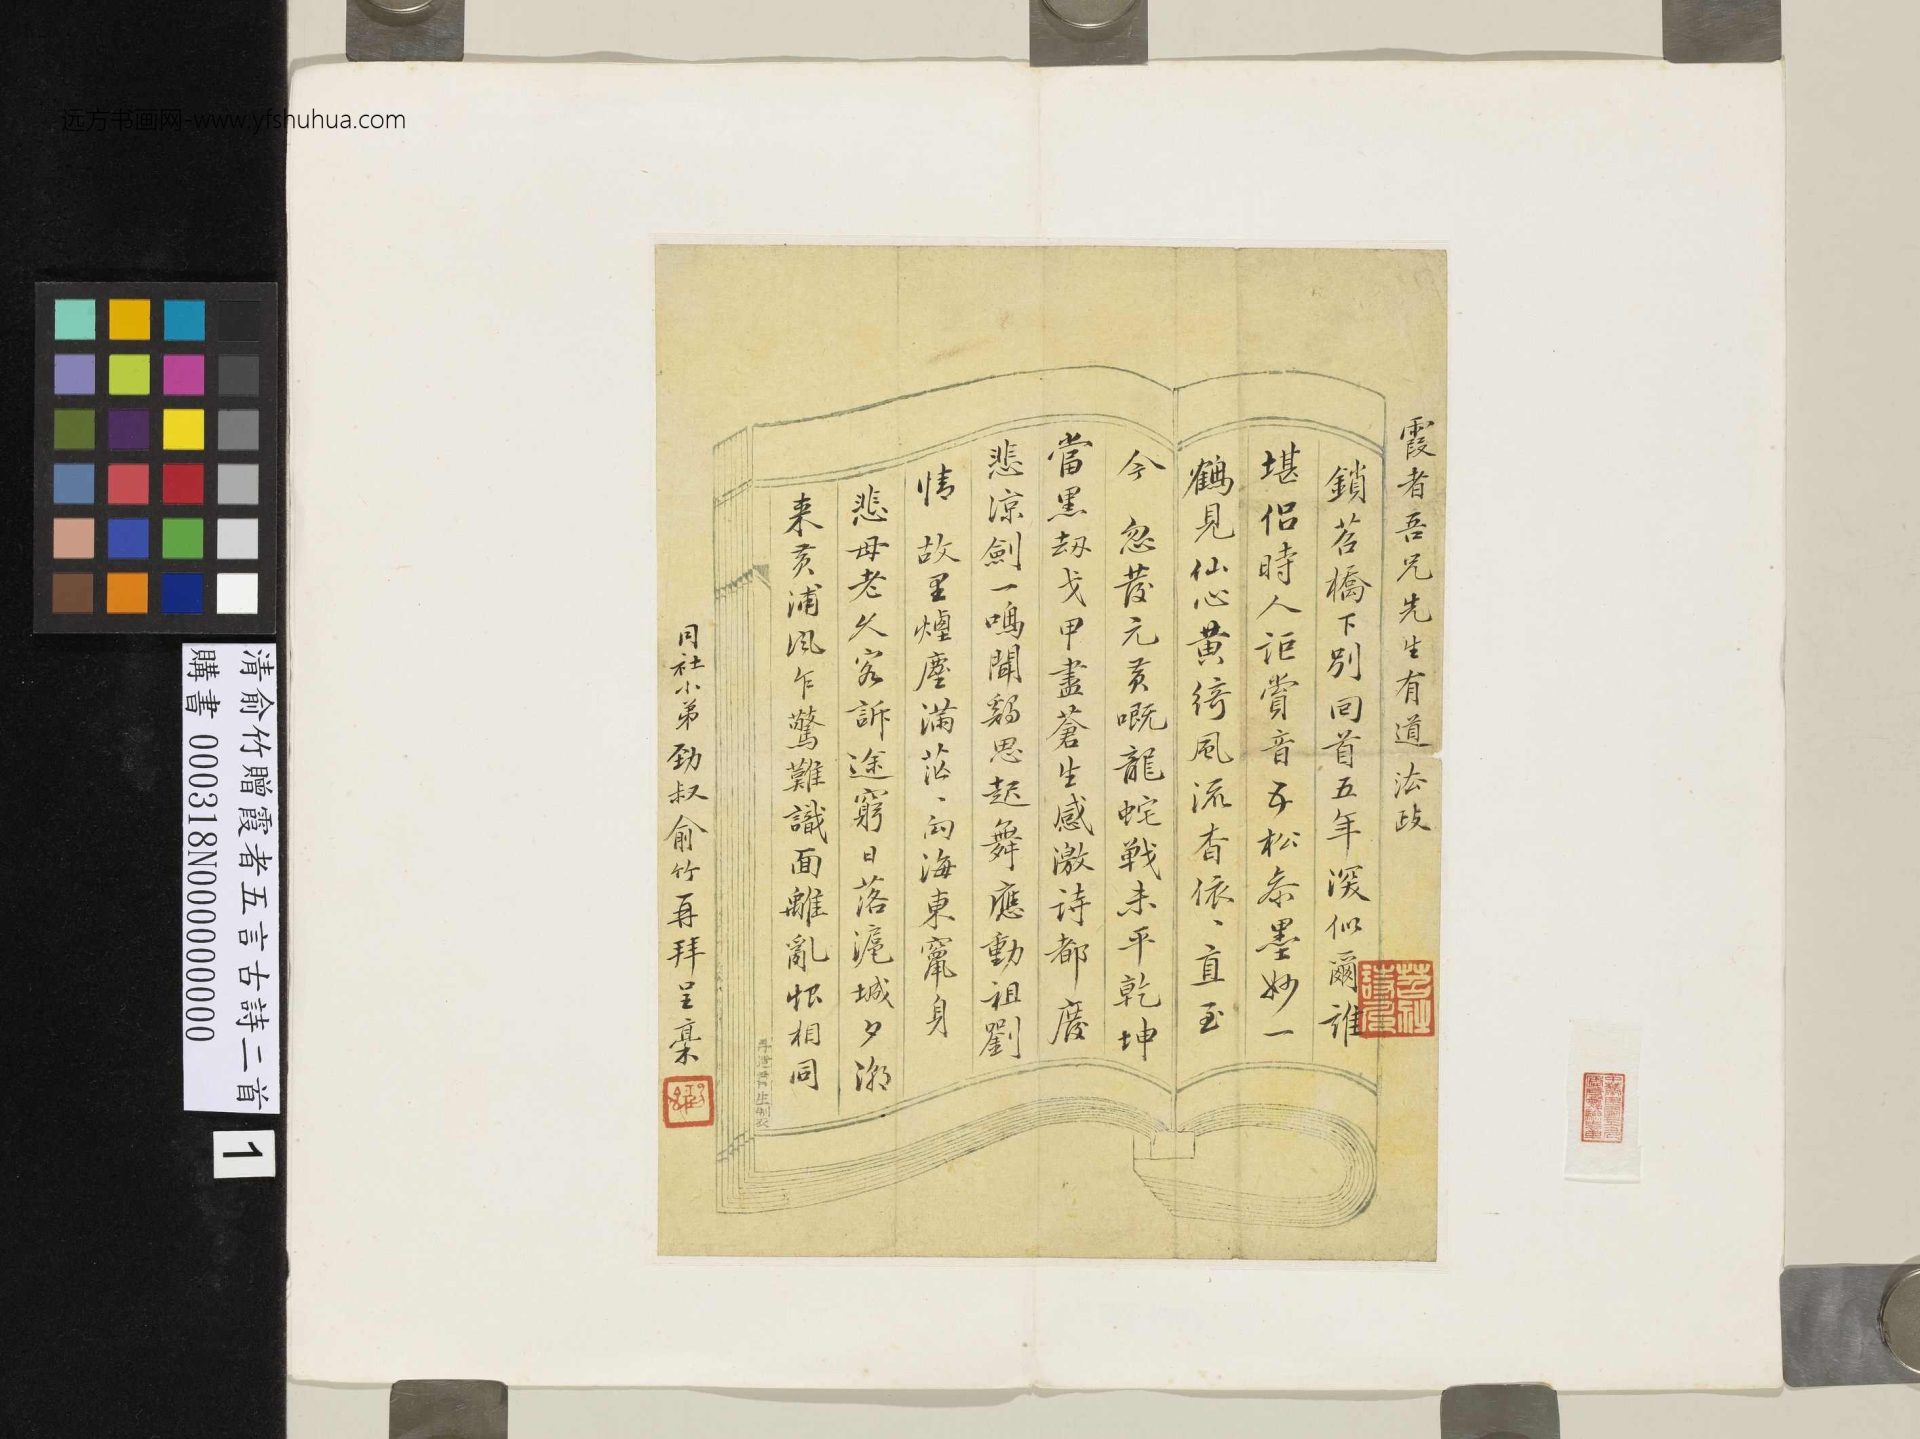 霞者吾兄先生有道 法政
鎖苔橋下別回首五年深似爾誰
堪侶時人詎賞音五松忝墨妙一
鶴見仙心黃綺風流杳依、直至
今 忽發元黃嘅龍蛇戰未平乾坤
當黑劫戈甲盡蒼生感激詩都廢
悲涼劍一鳴聞鷄思起舞應動祖劉
情 故里煙塵滿茫、向海東竄身
悲母老久客訴途窮日落滬城夕潮
來黃浦風乍驚難識面離亂恨相同
同社小弟勁叔俞竹再拜呈稾
清俞竹贈霞者五言古詩二首
購書 000318N000000000
1
远方书画网-www.yfshuhua.com